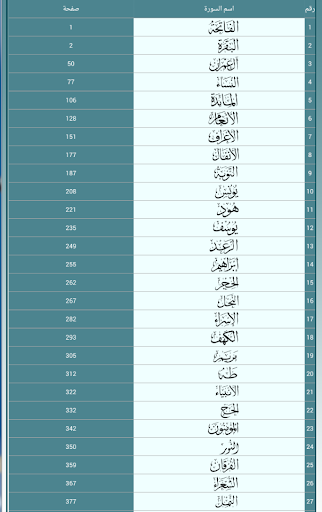 رقم اسم السورة صفحة
1 الفاتحة 1
2 البقرة 2
3 آل عمران 50
4 النساء 77
5 المائدة 106
6 الأنعام 128
7 الأعراف 151
8 الأنفال 177
9 التوبة 187
10 يونس 208
11 هود 221
12 يوسف 235
13 الرعد 249
14 إبراهيم 255
15 الحجر 262
16 النحل 267
17 الإسراء 282
18 الكهف 293
19 مريم 305
20 طه 312
21 الأنبياء 322
22 الحج 332
23 المؤمنون 342
24 النور 350
25 الفرقان 359
26 الشعراء 367
27 النمل 377